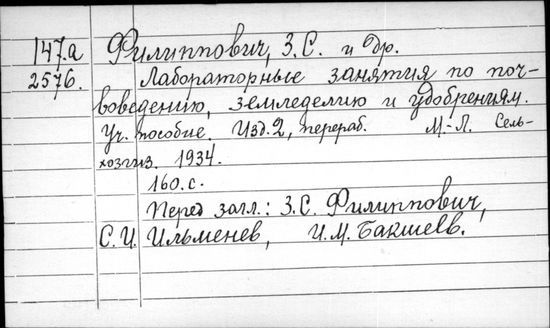 147.а Филиппович, З.С. и др.
2576. Лабораторные занятия по поч-
воведению, земледелию и удобрениям.
Уч. пособие. Изд. 2, перераб. М.-Л. Сель-
хозгиз. 1934.
160.с.
Перед загл.: З.С. Филиппович,
С.И. Ильменев, И.М. Бакшеев.